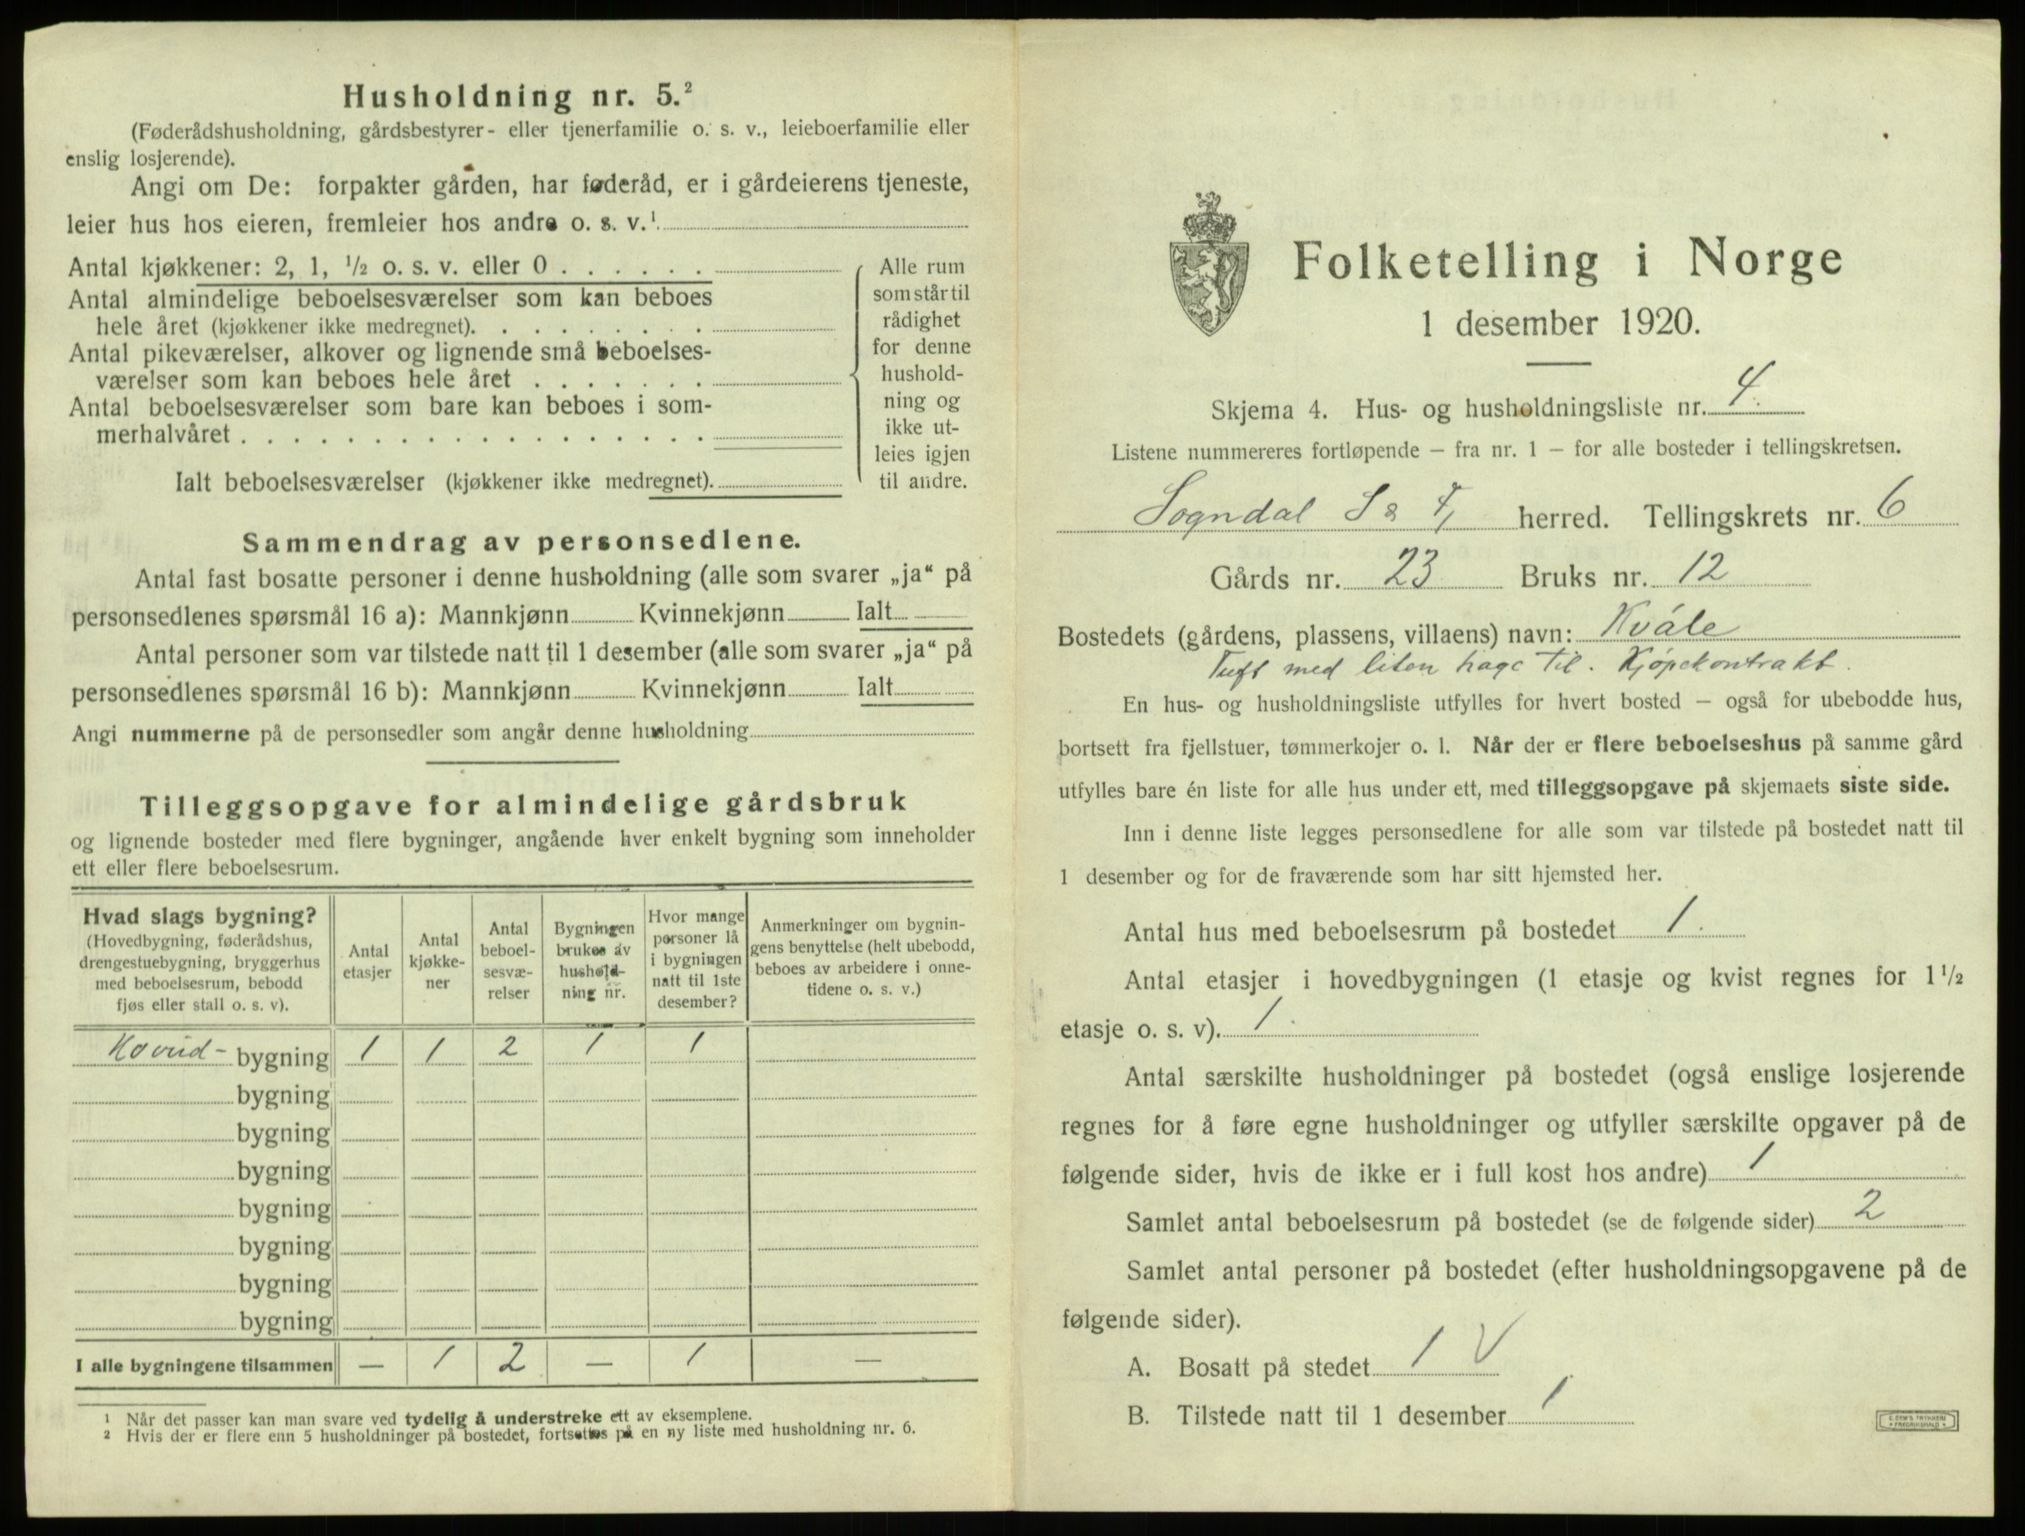 Husholdning nr. 5.²
(Føderådshusholdning, gårdsbestyrer- eller tjenerfamilie o. s. v., leieboerfamilie eller
enslig losjerende).
Angi om De: forpakter gården, har føderåd, er i gårdeierens tjeneste,
leier hus hos eieren, fremleier hos andre o. s. v.¹
Antal kjøkkener: 2, 1, ½ o. s. v. eller 0 . . . . . .
Antal almindelige beboelsesværelser som kan beboes
hele året (kjøkkener ikke medregnet). . . . . . . . .
Antal pikeværelser, alkover og lignende små beboelses-
værelser som kan beboes hele året . . . . . . .
Antal beboelsesværelser som bare kan beboes i som-
merhalvåret . . . . . . . . . . . . . . . . . .
Ialt beboelsesværelser (kjøkkener ikke medregnet).
Alle rum
som står til
rådighet
for denne
hushold-
ning og
ikke ut-
leies igjen
til andre.
Sammendrag av personsedlene.
Antal fast bosatte personer i denne husholdning (alle som svarer „ja“ på
personsedlenes spørsmål 16 a): Mannkjønn Kvinnekjønn Ialt
Antal personer som var tilstede natt til 1 desember (alle som svarer „ja“ på
personsedlenes spørsmål 16 b): Mannkjønn Kvinnekjønn Ialt
Angi nummerne på de personsedler som angår denne husholdning
Tilleggsopgave for almindelige gårdsbruk
og lignende bosteder med flere bygninger, angående hver enkelt bygning som inneholder
ett eller flere beboelsesrum.
Hvad slags bygning?
(Hovedbygning, føderådshus,
drengestuebygning, bryggerhus
med beboelsesrum, bebodd
fjøs eller stall o. s. v).
Antal
etasjer
Antal
kjøkke-
ner
Antal
beboel-
sesvæ-
relser
Bygningen
brukes av
hushold-
ning nr.
Hvor mange
personer lå
i bygningen
natt til 1ste
desember?
Anmerkninger om bygnin-
gens benyttelse (helt ubebodd,
beboes av arbeidere i onne-
tidene o. s. v.)
Hovud- bygning 1 1 2 1 1
bygning
bygning
bygning
bygning
bygning
bygning
bygning
I alle bygningene tilsammen — 1 2 — 1 —
¹ Når det passer kan man svare ved tydelig å understreke ett av eksemplene.
² Hvis der er flere enn 5 husholdninger på bostedet, fortsettes på en ny liste med husholdning nr. 6.
Folketelling i Norge
1 desember 1920.
Skjema 4. Hus- og husholdningsliste nr. 4.
Listene nummereres fortløpende — fra nr. 1 — for alle bosteder i tellingskretsen.
Sogndal S & F, herred. Tellingskrets nr. 6
Gårds nr. 23 Bruks nr. 12
Bostedets (gårdens, plassens, villaens) navn: Kvåle
Tuft med liten hage til. Kjøpekontrakt.
En hus- og husholdningsliste utfylles for hvert bosted — også for ubebodde hus,
bortsett fra fjellstuer, tømmerkojer o. l. Når der er flere beboelseshus på samme gård
utfylles bare én liste for alle hus under ett, med tilleggsopgave på skjemaets siste side.
Inn i denne liste legges personsedlene for alle som var tilstede på bostedet natt til
1 desember og for de fraværende som har sitt hjemsted her.
Antal hus med beboelsesrum på bostedet 1.
Antal etasjer i hovedbygningen (1 etasje og kvist regnes for 1 ½
etasje o. s. v). 1.
Antal særskilte husholdninger på bostedet (også enslige losjerende
regnes for å føre egne husholdninger og utfyller særskilte opgaver på de
følgende sider, hvis de ikke er i full kost hos andre) 1
Samlet antal beboelsesrum på bostedet (se de følgende sider) 2
Samlet antal personer på bostedet (efter husholdningsopgavene på de
følgende sider).
A. Bosatt på stedet 1 V
B. Tilstede natt til 1 desember 1